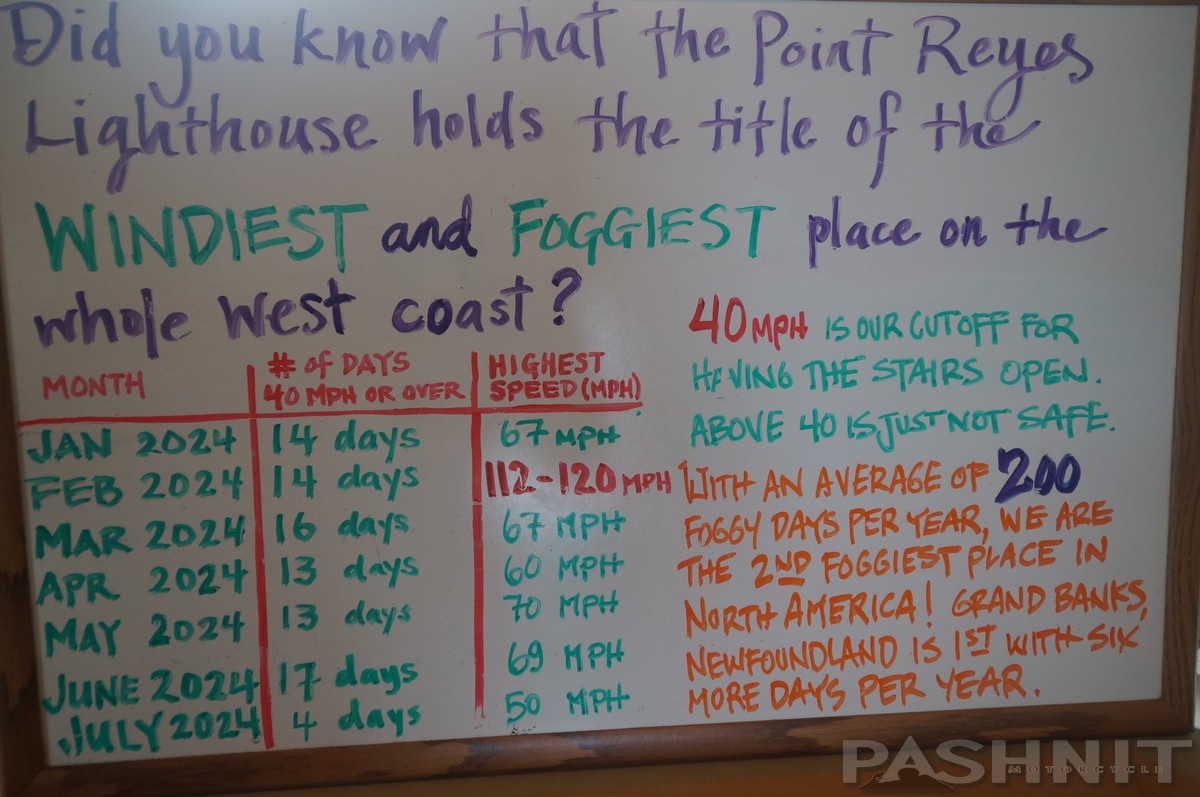 Did you know that the Point Reyes
Lighthouse holds the title of the
WINDIEST and FOGGIEST place on the
whole West coast?
MONTH # of DAYS 40 MPH OR OVER HIGHEST SPEED (MPH)
JAN 2024 14 days 67 MPH
FEB 2024 14 days 112-120 MPH
MAR 2024 16 days 67 MPH
APR 2024 13 days 60 MPH
MAY 2024 13 days 70 MPH
JUNE 2024 17 days 69 MPH
JULY 2024 4 days 50 MPH
40 MPH IS OUR CUTOFF FOR
HAVING THE STAIRS OPEN.
ABOVE 40 IS JUST NOT SAFE.
WITH AN AVERAGE OF 200
FOGGY DAYS PER YEAR, WE ARE
THE 2ND FOGGIEST PLACE IN
NORTH AMERICA! GRAND BANKS,
NEWFOUNDLAND IS 1ST WITH SIX
MORE DAYS PER YEAR.
PASHNIT
MOTORCYCLE